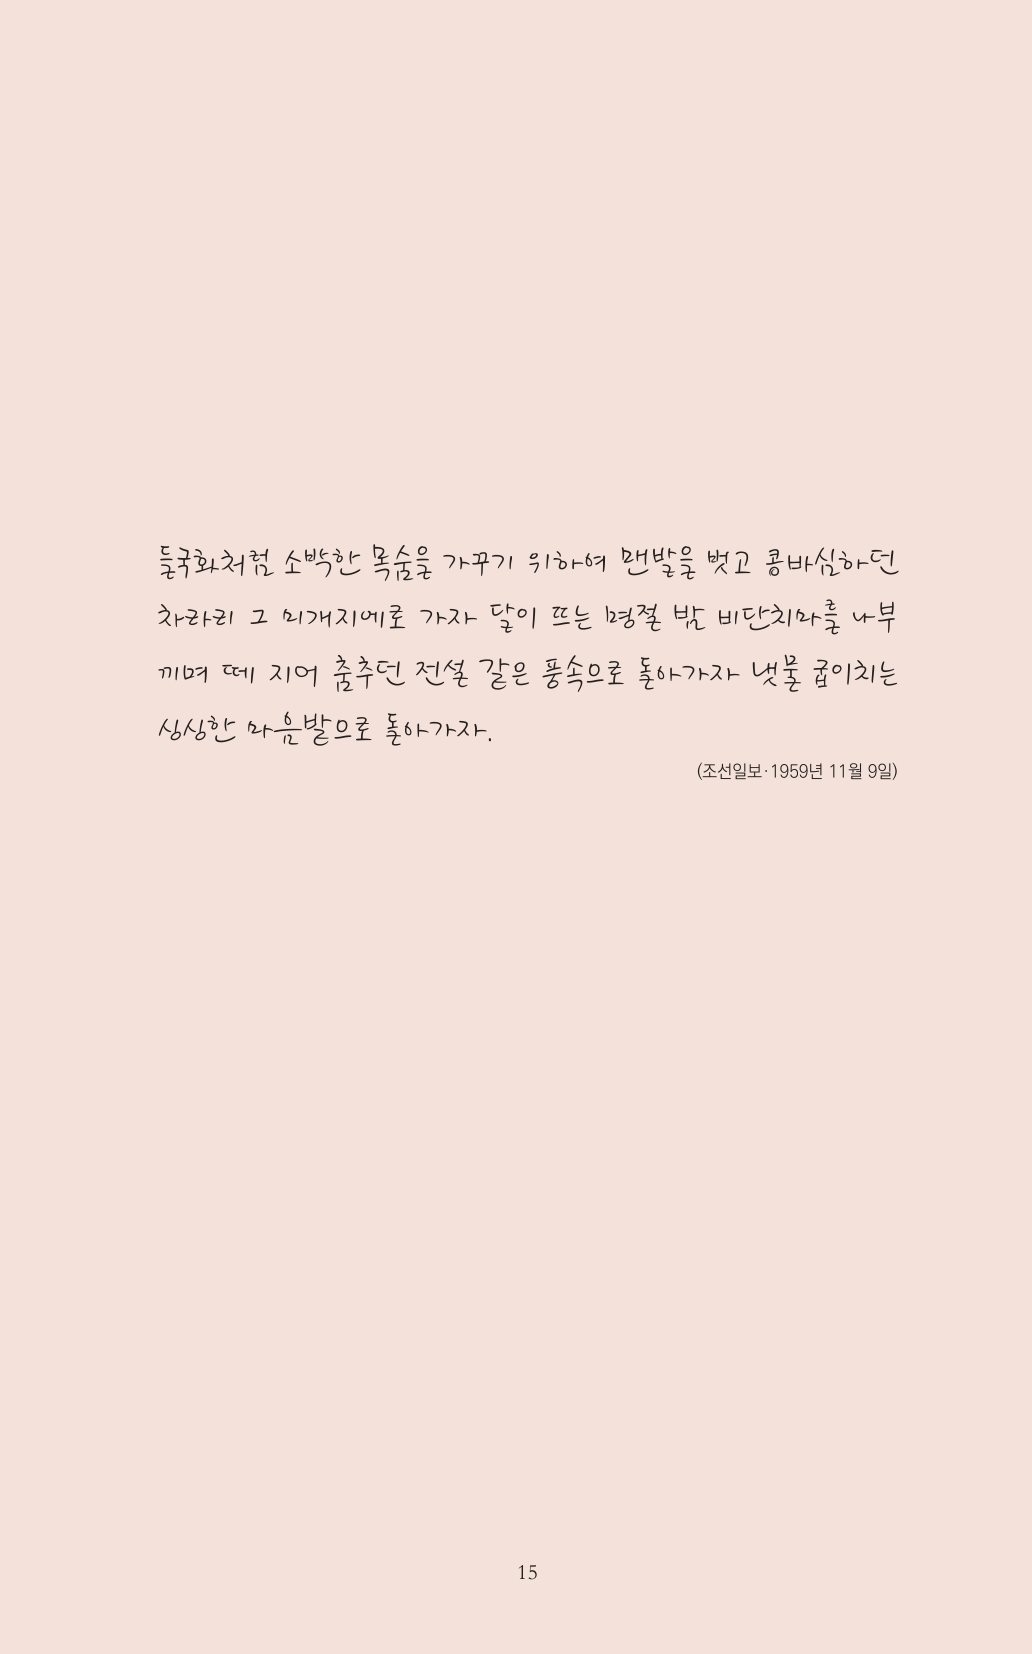 들국화처럼 소박한 목숨을 가꾸기 위하여 맨발을 벗고 콩바심하던
차라리 그 미개지에로 가자 달이 뜨는 명절 밤 비단치마를 나부
끼며 떼 지어 춤추던 전설 같은 풍속으로 돌아가자 냇물 굽이치는
싱싱한 마음밭으로 돌아가자.
(조선일보·1959년 11월 9일)
15